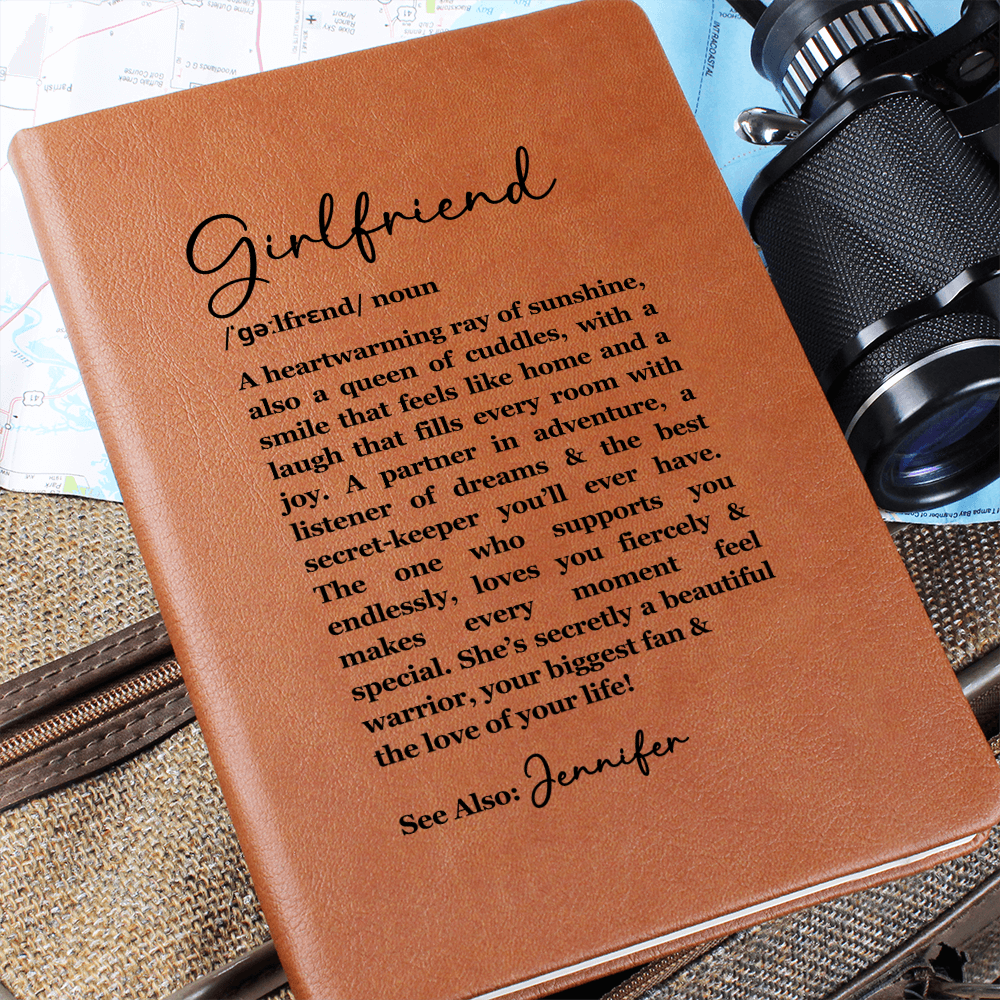 Girlfriend
/ˈgɚːlfrɛnd/ noun
A heartwarming ray of sunshine,
also a queen of cuddles, with a
smile that feels like home and a
laugh that fills every room with
joy. A partner in adventure, a
listener of dreams & the best
secret-keeper you’ll ever have.
The one who supports you
endlessly, loves you fiercely &
makes every moment feel
special. She’s secretly a beautiful
warrior, your biggest fan &
the love of your life!
See Also: Jennifer
Airport
Ranch
Dixie Sky
Woodlands G C
Buffalo Creek
Golf Course
Parrish
41
41
41
INTRACOASTAL
Park